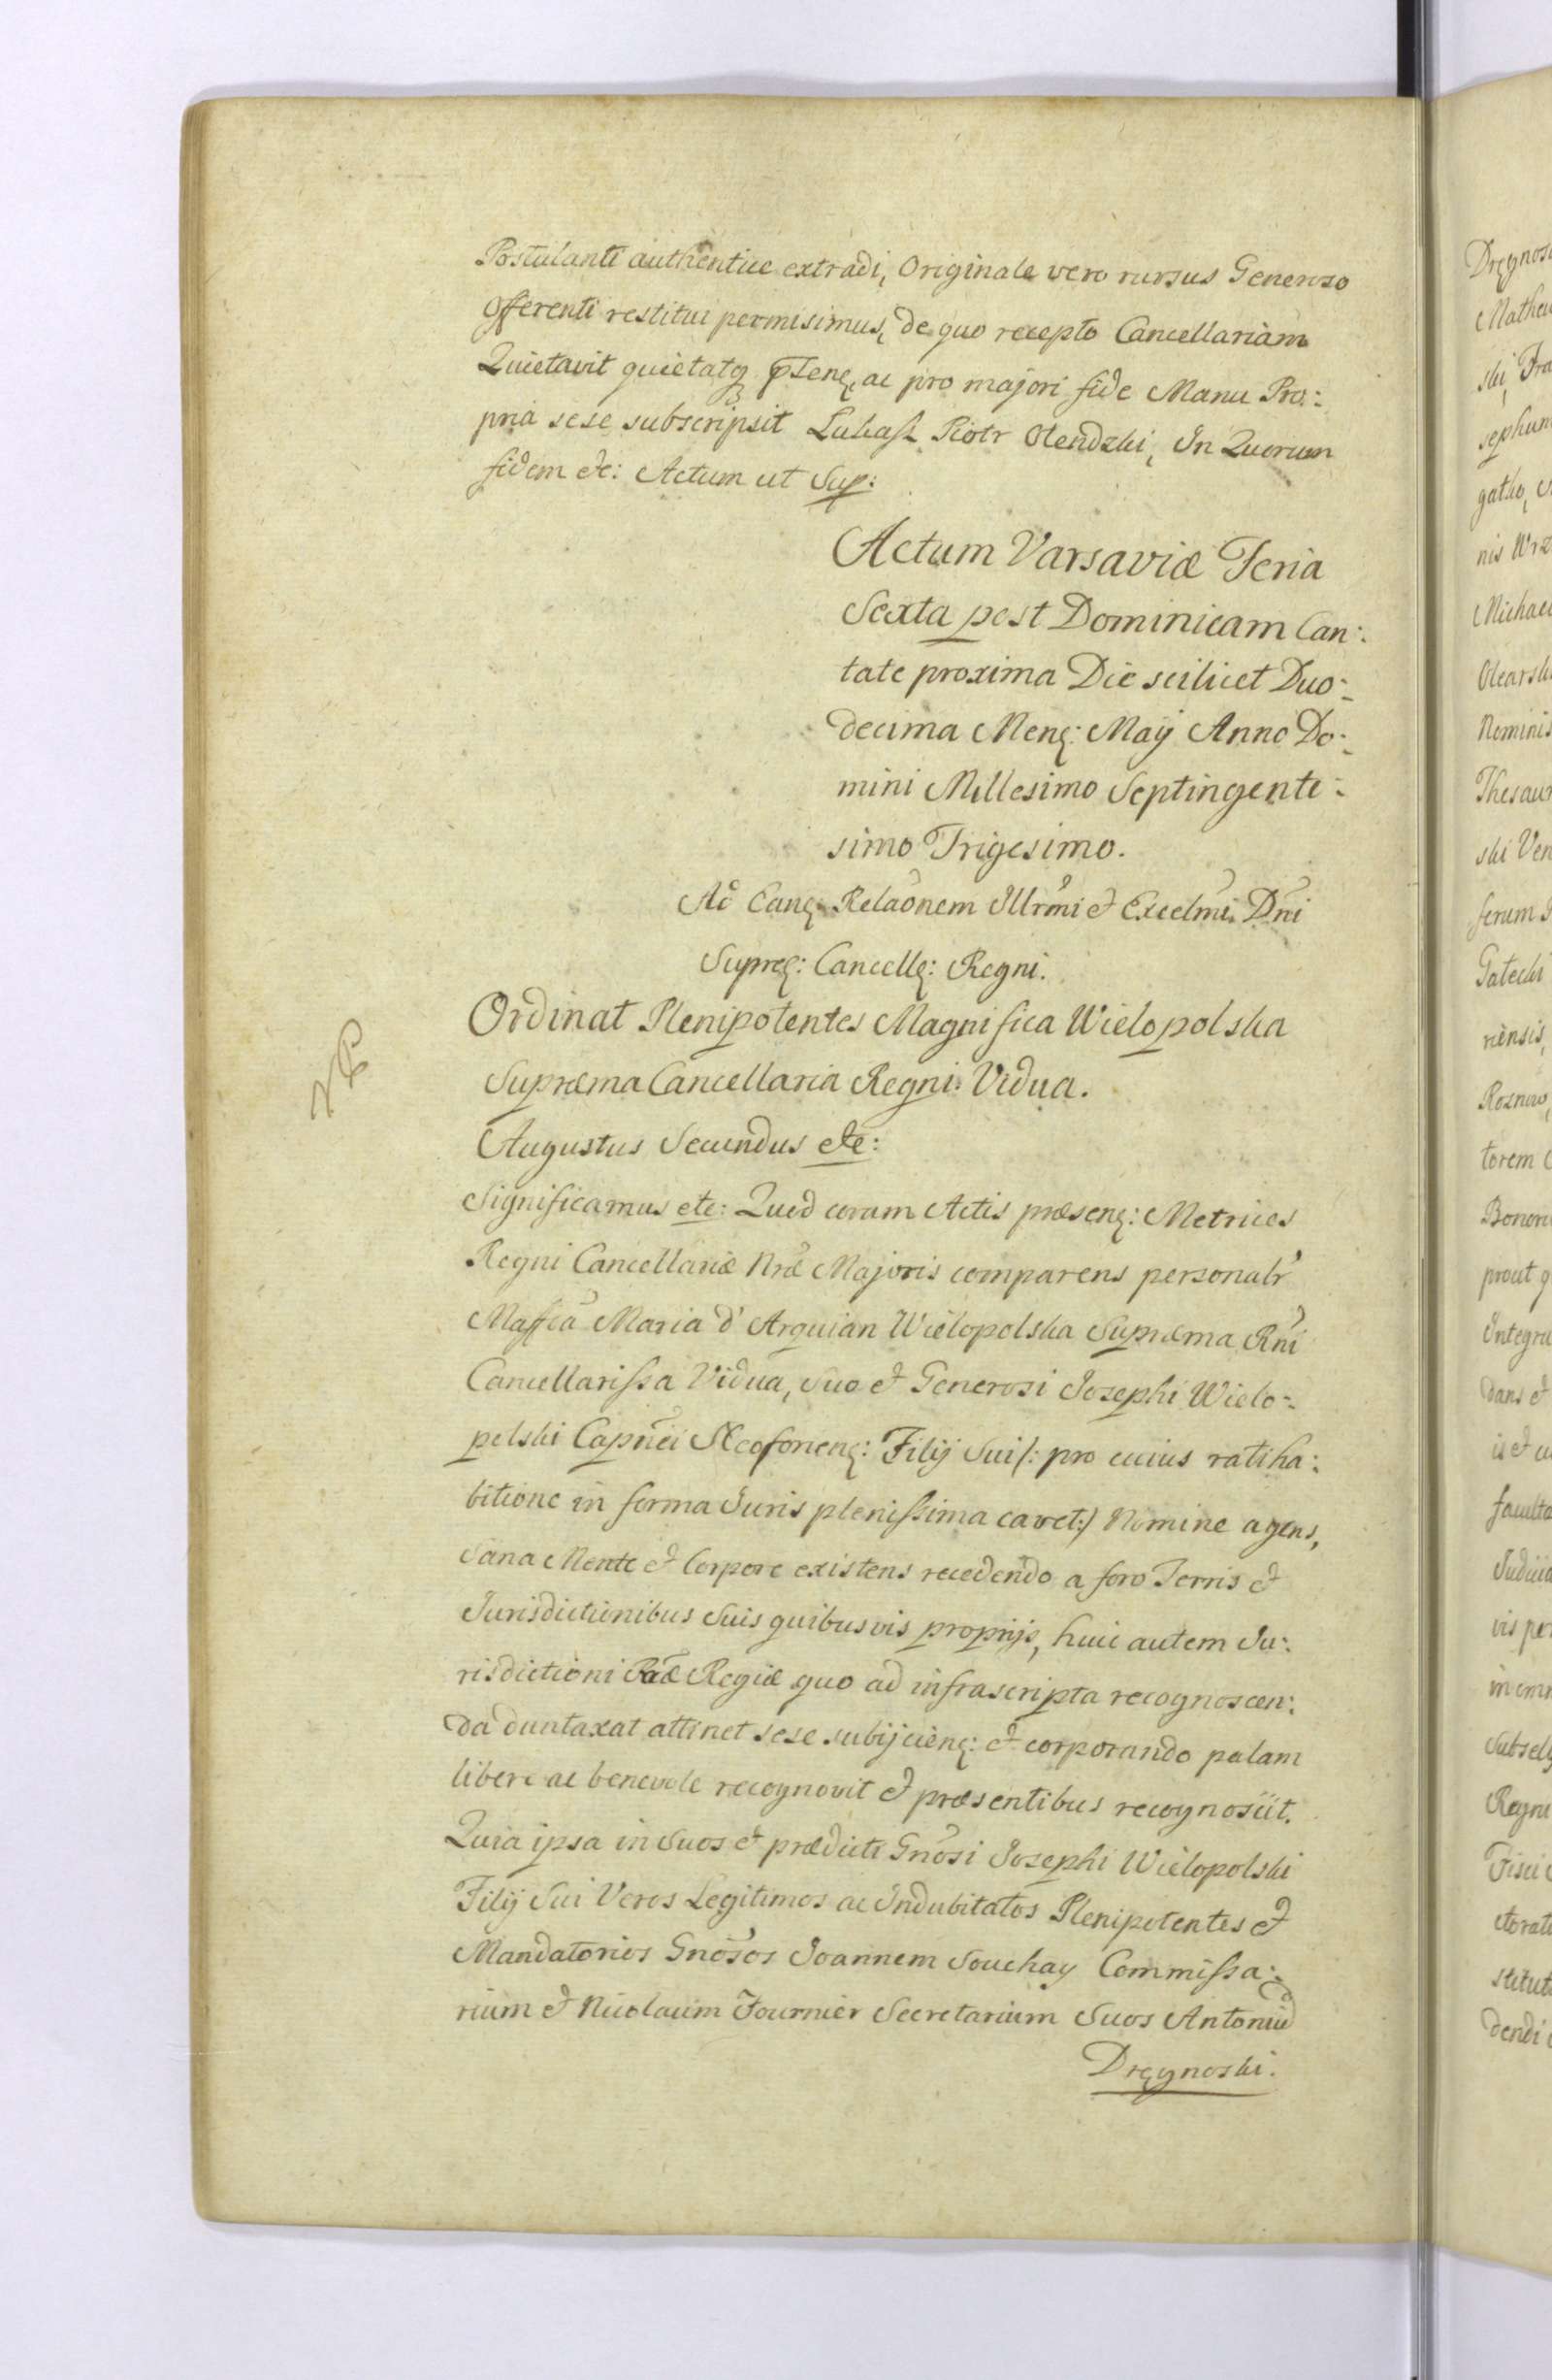 Postulanti authentice extradi, Originale vero rursus Generoso
Offerenti restitui permisimus, de quo recepto Cancellariam
Quietavit quietatq; pñtenς, ac pro majori fide Manu Pro:
pria sese subscripsit Lukasz Piotr Olendzki, In Quorum
fidem etc: Actum ut Sup:
Actum Varsaviæ Feria
Sexta post Dominicam Can:
tate proxima Die scilicet Duo:
decima Menς: Maÿ Anno Do:
mini Millesimo Septingente:
simo Trigesimo.
Ad Eanς Relaõnem Illrm̃i et Excelm̃i Dñi
Supreς: Cancellς: Regni.
NB
Ordinat Plenipotentes Magnifica Wielopolska
Suprema Cancellaria Regni Vidua.
Augustus Secundus etc:
Significamus etc: Quod coram Actis præsenς: Metrices
Regni Cancellariæ Nræ Majoris comparens personalr̃
Maffca Maria d' Arquian Wielopolska Suprema Rñi
Cancellarissa Vidua, suo et Generosi Josephi Wielo:
polski Capñei Filÿ Sui /: pro cuius ratiha:
bitione in forma Juris plenissima cavet:/ Nomine agens,
Sana Mente et Corpore existens recedendo a foro Terris et
Jurisdictionibus Suis quibusvis proprijs, huic autem Ju:
risdictioni Regiæ quo ad infrascripta recognoscen:
da duntaxat attinet sese subijcienς: et corporando palam
libere ac benevole recognovit et præsentibus recognoscit.
Quia ipsa in Suos et prædicti Gnõsi Josephi Wielopolski
Filÿ Sui Veros Legitimos ac Indubitatos Plenipotentes et
Mandatorios Gnõsos Joannem Souchay Commissa:
rium et Nicolaum Fournier Secretarium Suos Antoniũ
Dręgnoski.